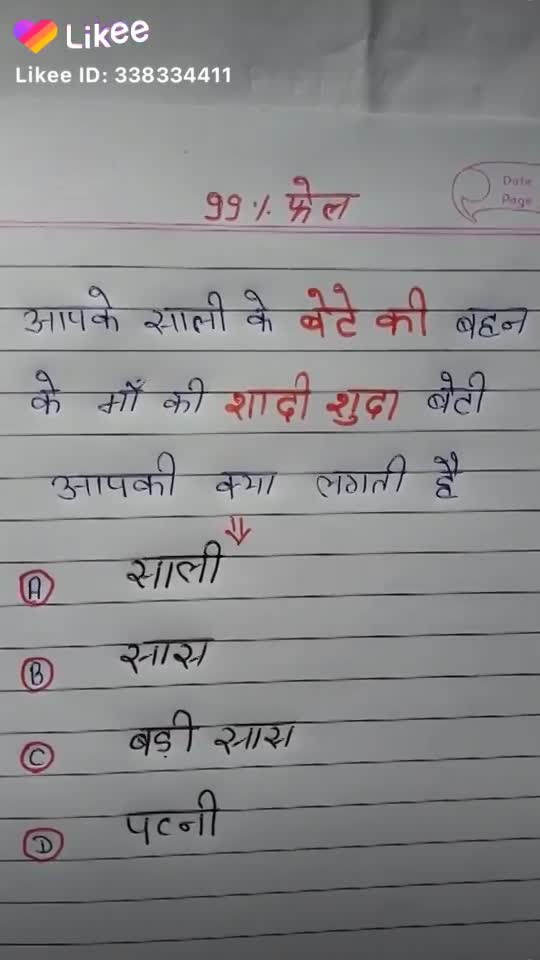 Likee
Likee ID: 338334411
Date
Page
99% फेल
आपके साली के बेटे की बहन
के माँ की शादी शुदा बेटी
आपकी क्या लगती है
Ⓐ साली
Ⓑ सास
Ⓒ बड़ी सास
Ⓓ पत्नी